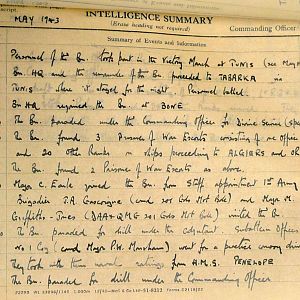 MAY 1943
INTELLIGENCE SUMMARY
(Erase heading not required)
Commanding Officer
Summary of Events and Information
Personnel of the Bn. took part in the Victory March at TUNIS (see May
Bn. HQ and the remainder of the Bn proceeded to TABARKA via
TUNIS where it stayed for the night. Personnel
Bn HQ rejoined the Bn. at BONE
The Bn paraded under the Commanding Officer for Divine Service
The Bn. found 3 Prisoner of War Escorts consisting of one officer
and 20 other Ranks on ships proceeding to ALGIERS and
The Bn. found 2 Prisoner of War Escorts as above.
Major C. Earle joined the Bn. from Staff appointment 1st Army
Brigadier J.A. Gascoigne (Cmd 201 Gds Mot Bde) and Major M.
Griffith-Jones (DAA+QMG 201 Gds Mot Bde) visited the Bn.
The Bn. paraded for drill under the adjutant.
No 1 Coy (Cmd Major P.W. Marsham) went for a practice convoy
They took with them naval ratings from H.M.S. PENELOPE
The Bn. paraded for drill under the Commanding Officer